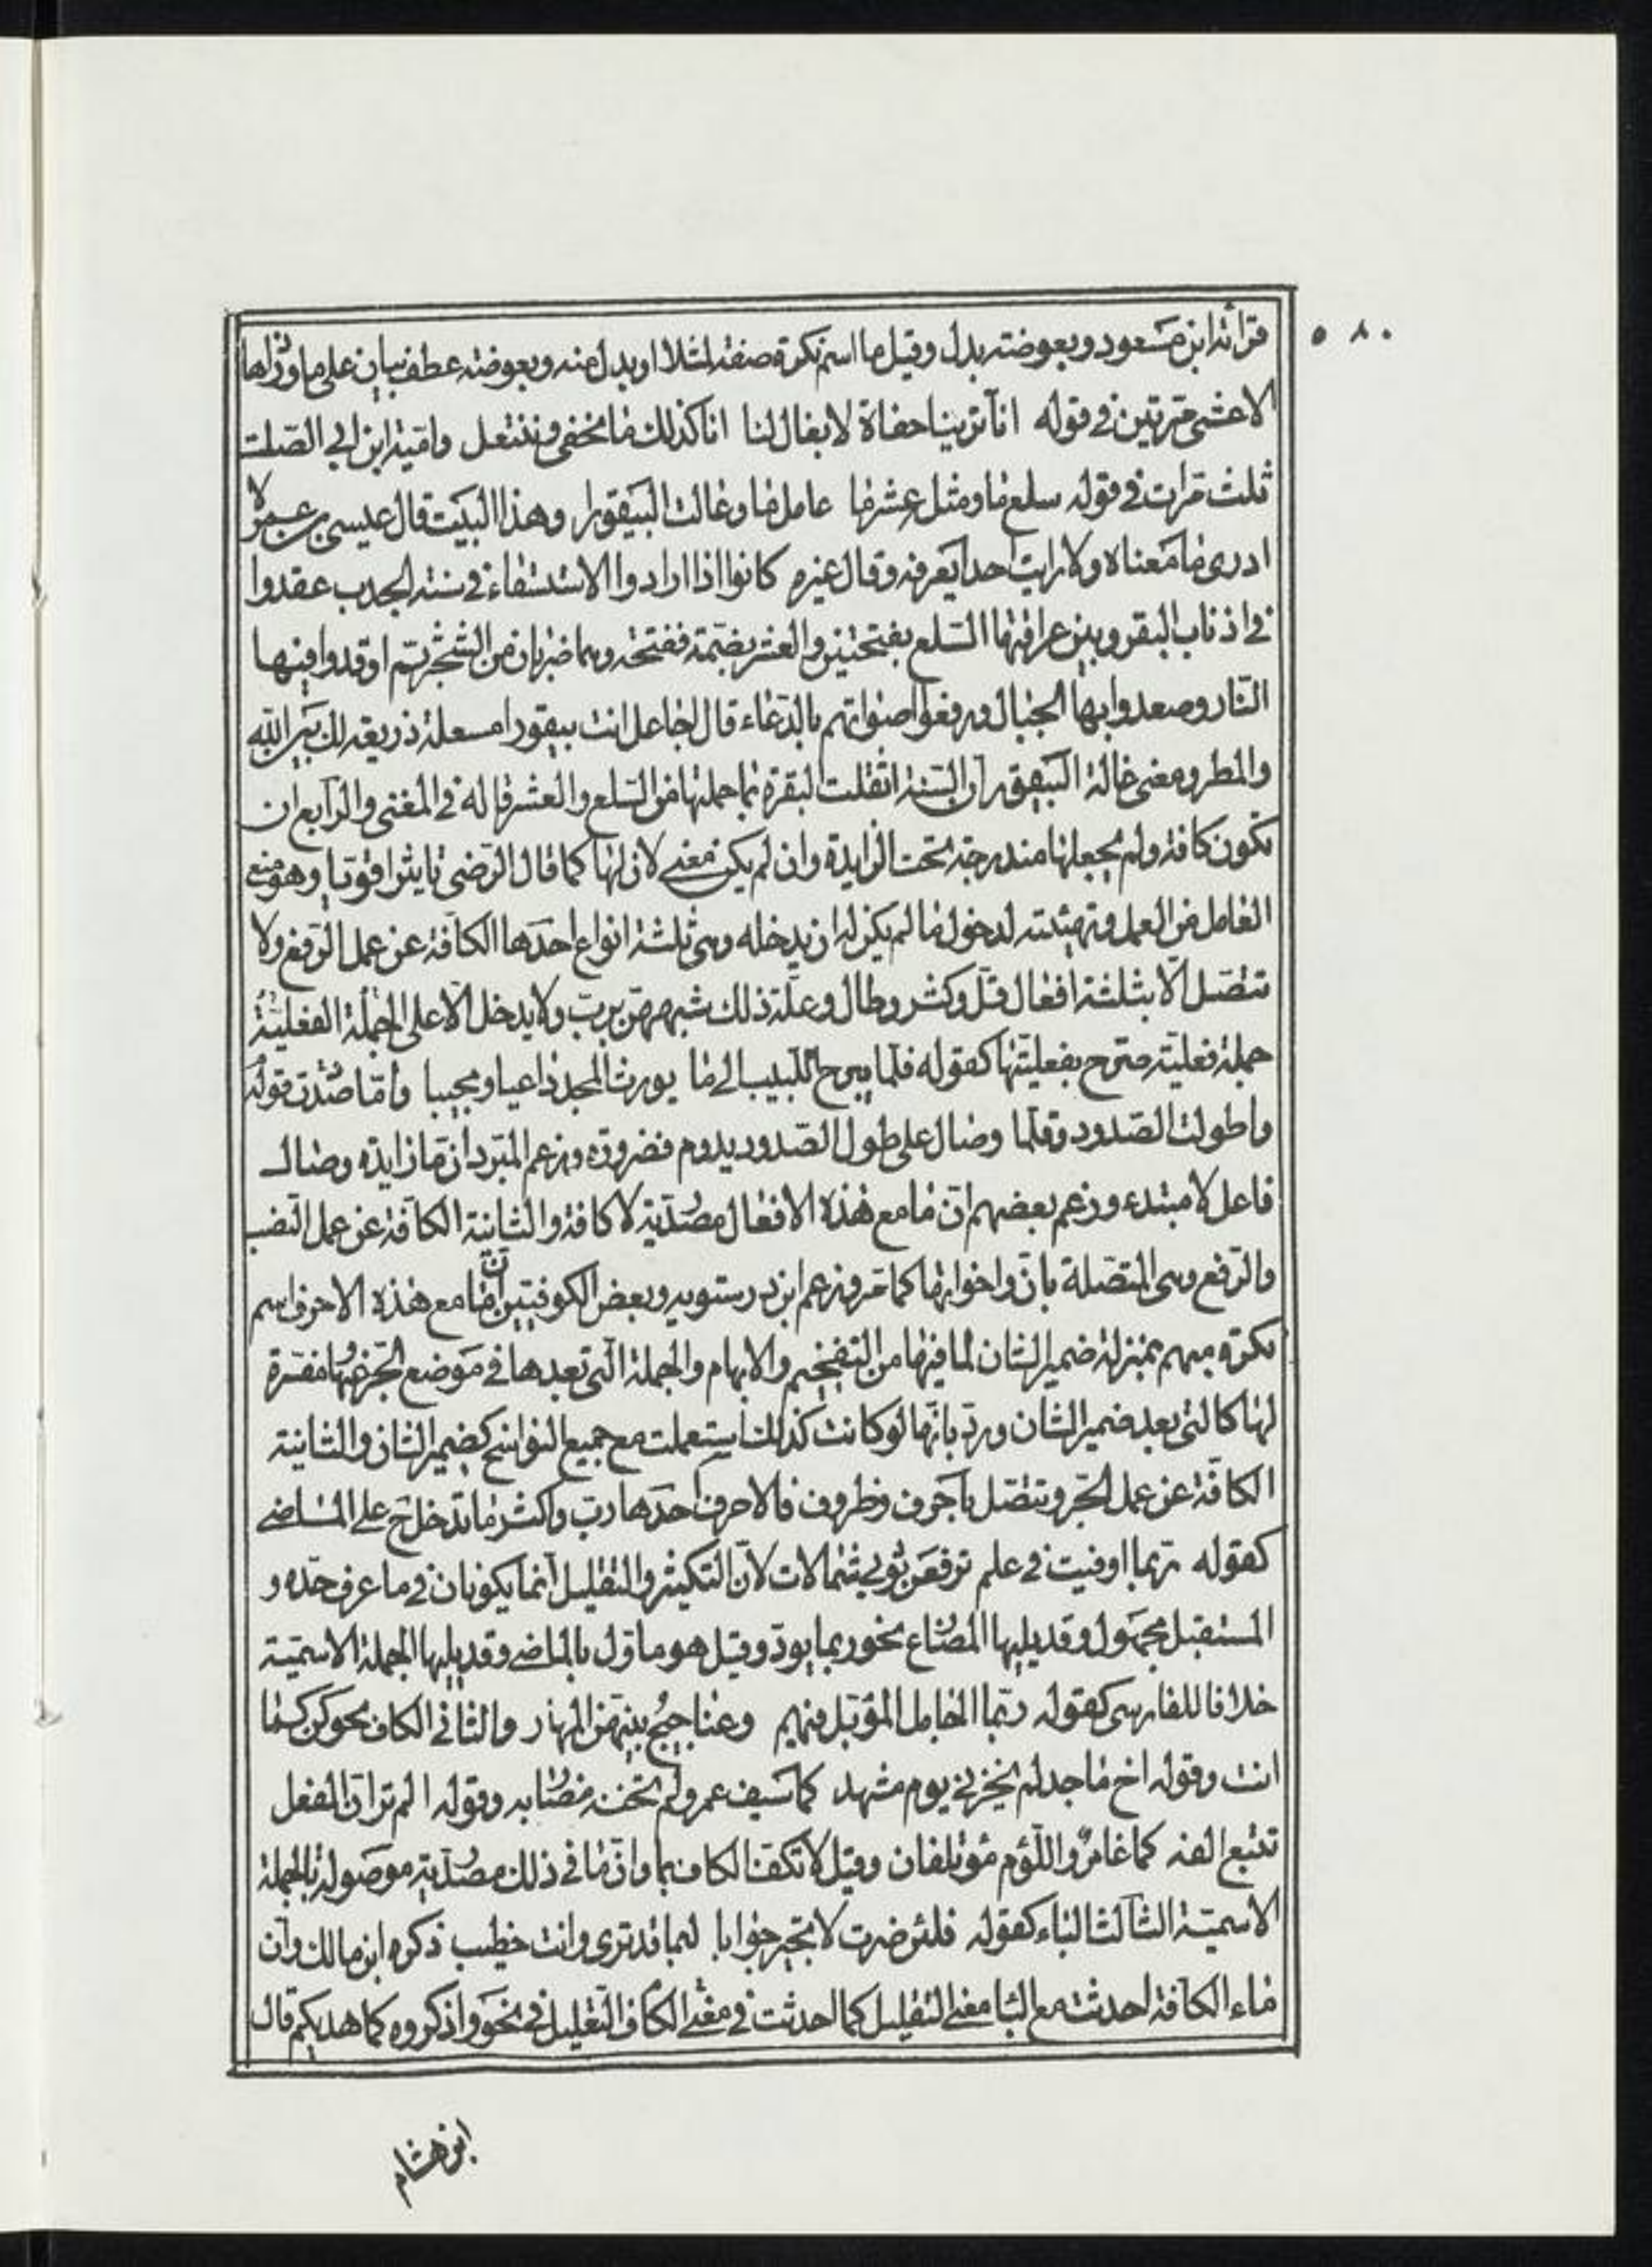 ٥٨٠
قرائة ابن مسعود وبعوضته بدل وقيل ما اسم نكرة صفة لمثلا او بدل منه وبعوضته عطف بيان على ما وزادها
الاعشى مرتين في قوله اما ترينا حفاة لا نعال لنا اناكذلك ما نخفى وننتعل وامية ابن ابي الصلت
ثلث مرات في قوله سلع ما ومثل عشر ما عامل ما وعالت البيقورا وهذا البيت قال عيسى بن عمر لا
ادرى ما معناه ولا رايت احدا يعرفه وقال غيره كانوا اذا ارادوا الاستسقاء في سنة الجدب عقدوا
في اذناب البقر وبين عراقيبها السلع بفتحتين والعشر بضمة ففتحة وهما ضربان من الشجر ثم اوقدوا فيها
النار وصعدوا بها الجبال ورفعوا اصواتهم بالدعاء قال اجاعل انت بيقورا مسعلة ذريعة لك بين الله
والمطر ومعنى عالة البيقور ان السنة اثقلت البقرة بما حملتها من السلع والعشر قاله في المغنى والرابع ان
تكون كافة ولم يجعلها مندرجة تحت الزايدة وان لم يكن معنى لان لها كما قال الرضى تايثرا قويا وهو منع
العامل من العمل وتهيئته لدخول ما لم يكن له ان يدخله وهى ثلثة انواع احدها الكافة عن عمل الرفع ولا
تتصل الا بثلثة افعال قل وكثر وطال وعلة ذلك شبههن برب ولا يدخل الا على الجملة الفعلية
جملة فعلية صرح بفعليتها كقوله قلما يبرح اللبيب الى ما يورث المجد داعيا او مجيبا واما صددت قوله
واطولت الصدود وقلما وصال على طول الصدود يدوم فضرورة وزعم المبرد ان ما زايدة وصال
فاعل لا مبتدء وزعم بعضهم ان ما مع هذه الافعال مصدرية لا كافة والثانية الكافة عن عمل النصب
والرفع وهى المتصلة بان واخواتها كما مر وزعم ابن درستويه وبعض الكوفيين ان ما مع هذه الاحرف اسم
نكرة مبهم بمنزلة ضمير الشان لما فيها من التفخيم والابهام والجملة التى بعدها في موضع الخبر عنها مفسرة
لها كالتى بعد ضمير الشان ورد بانها لو كانت كذلك استعملت مع جميع النواسخ كضمير الشان والثانية
الكافة عن عمل الجر وتتصل باحرف وظروف فالاحرف احدها رب واكثر ما تدخل ح على الماضى
كقوله ربما اوفيت في علم ترفعن ثوبي شمالات لان التكثير والتقليل انما يكونان في ما عرف حده و
المستقبل مجهول وقد يليها المضارع نحو ربما يود وقيل هو ماول بالماضى وقد يليها الجملة الاسمية
خلافا للفارسى كقوله ربما الجامل المؤبل فيهم وعناجيج بينهن المهار والثانى الكاف نحو كن كما
انت وقوله اخ ماجد لم يخزنى يوم مشهد كما سيف عمرو لم تخنه مضاربه وقوله الم تر ان البغل
تتبع الفه كما عامر واللؤم مؤتلفان وقيل لا تكف الكاف بما وان ما في ذلك مصدرية موصولة بالجملة
الاسمية الثالث الباء كقوله فلئن صرت لا تحير جوابا لبما قد ترى وانت خطيب ذكره ابن مالك وان
ماء الكافة احدثت مع البا معنى التقليل كما احدثت في معنى الكاف التعليل في نحو واذكروه كما هديكم قال
ابن هشام